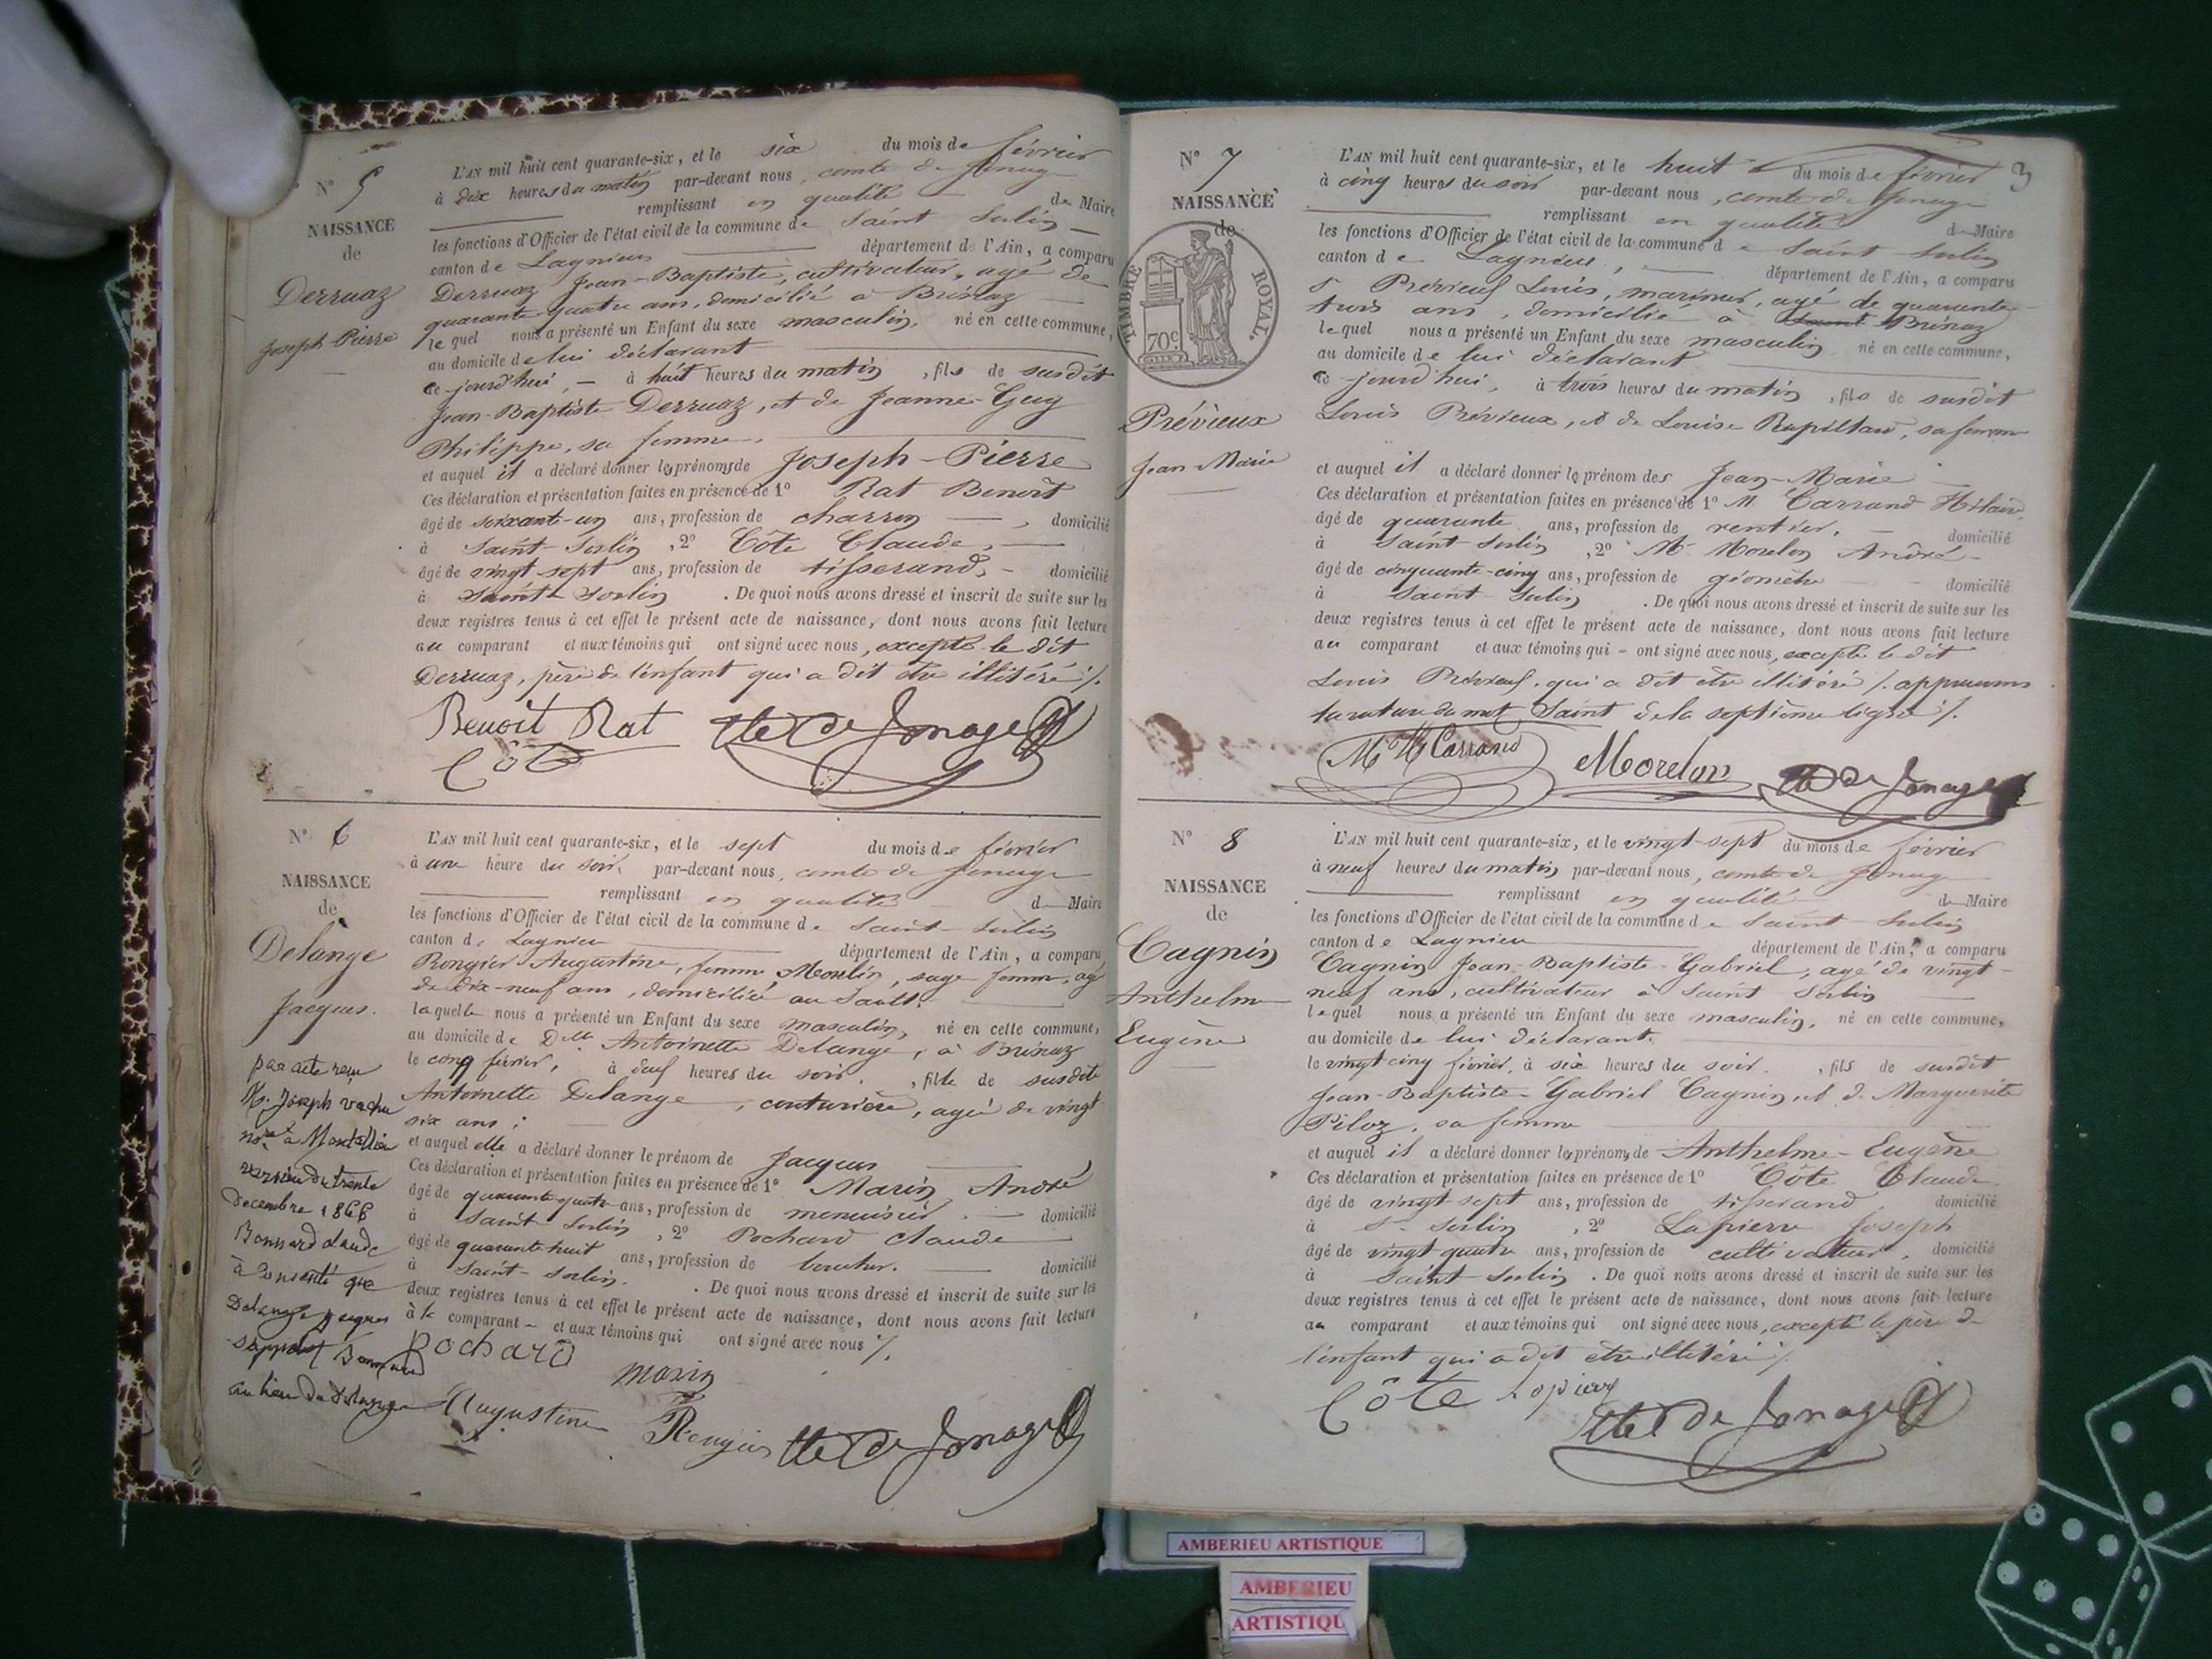 N° 5
NAISSANCE
de
Derruaz
Joseph Pierre
L'AN mil huit cent quarante-six, et le six du mois de février
à dix heures du matin par-devant nous, comte de Jonage
remplissant en qualité de Maire
les fonctions d'Officier de l'état civil de la commune de Saint Sorlin
canton de Lagnieu département de l'Ain, a comparu
Derruaz Jean-Baptiste, cultivateur, agé de
quarante quatre ans, domicilié à Brénaz
lequel nous a présenté un Enfant du sexe masculin, né en cette commune,
au domicile de lui déclarant
ce jourd'hui, à huit heures du matin, fils de susdit
Jean-Baptiste Derruaz, et de Jeanne-Guy
Philippe, sa femme.
et auquel il a déclaré donner les prénoms de Joseph-Pierre
Ces déclaration et présentation faites en présence de 1° Rat Benoît
âgé de soixante-un ans, profession de charron, domicilié
à Saint-Sorlin, 2° Côte Claude,
âgé de vingt sept ans, profession de tisserand, domicilié
à Saint Sorlin. De quoi nous avons dressé et inscrit de suite sur les
deux registres tenus à cet effet le présent acte de naissance, dont nous avons fait lecture
au comparant et aux témoins qui ont signé avec nous, excepté le dit
Derruaz, père de l'enfant qui a dit etre illitéré /.
Benoit Rat Cte De Jonage
Côte
N° 6
NAISSANCE
de
Delange
Jacques.
par acte reçu
M. Joseph
not. à Montalieu
vercieu du trente
Decembre 1866
Bonnard claude
à consenti que
Delange Jacques
s'appelat Bonnard
au lieu de Delange
L'AN mil huit cent quarante-six, et le sept du mois de février
à une heure du soir, par-devant nous, comte de Jonage
remplissant en qualité de Maire
les fonctions d'Officier de l'état civil de la commune de Saint-Sorlin
canton de Lagnieu département de l'Ain, a comparu
Rongier Augustine, femme Moulin, sage femme, agé
de dix-neuf ans, domiciliée au Sault.
laquelle nous a présenté un Enfant du sexe masculin, né en cette commune,
au domicile de Delle Antoinette Delange, à Brénaz
le cinq février, à deux heures du soir, fils de susdite
Antoinette Delange, couturière, agée de vingt
six ans;
et auquel elle a déclaré donner le prénom de Jacques
Ces déclaration et présentation faites en présence de 1° Marin André
âgé de quarante quatre ans, profession de menuisier, domicilié
à Saint-Sorlin, 2° Pochard Claude
âgé de quarante huit ans, profession de boucher. domicilié
à Saint-Sorlin. De quoi nous avons dressé et inscrit de suite sur les
deux registres tenus à cet effet le présent acte de naissance, dont nous avons fait lecture
à la comparant et aux témoins qui ont signé avec nous /.
Pochard
marin
Augustine Rongier Cte De Jonage
3
N° 7
NAISSANCE
de
TIMBRE ROYAL.
70c
Prévieux
Jean Marie
L'AN mil huit cent quarante-six, et le huit du mois de février
à cinq heures du soir par-devant nous, comte de Jonage
remplissant en qualité de Maire
les fonctions d'Officier de l'état civil de la commune de Saint Sorlin
canton de Lagnieu, département de l'Ain, a comparu
Prévieux Louis, marinier, agé de quarante-
trois ans, domicilié à Saint Brénaz
lequel nous a présenté un Enfant du sexe masculin né en cette commune,
au domicile de lui déclarant
ce jourd'hui, à trois heures du matin, fils de susdit
Louis Prévieux, et de Louise Rapillard, sa femme
et auquel il a déclaré donner le prénom des Jean-Marie
Ces déclaration et présentation faites en présence de 1° M. Carrand Hilaire,
âgé de quarante ans, profession de rentier, domicilié
à Saint-Sorlin, 2° Mr Morelon André
âgé de cinquante-cinq ans, profession de géomètre domicilié
à Saint-Sorlin. De quoi nous avons dressé et inscrit de suite sur les
deux registres tenus à cet effet le présent acte de naissance, dont nous avons fait lecture
au comparant et aux témoins qui ont signé avec nous, excepté le dit
Louis Prévieux, qui a dit etre illitéré /. approuvons
la rature du mot Saint de la septième ligne /.
Carrand Morelon Cte De Jonage
N° 8
NAISSANCE
de
Cagnin
Anthelme
Eugène
L'AN mil huit cent quarante-six, et le vingt-sept du mois de février
à neuf heures du matin par-devant nous, comte de Jonage
remplissant en qualité de Maire
les fonctions d'Officier de l'état civil de la commune de Saint Sorlin
canton de Lagnieu département de l'Ain, a comparu
Cagnin Jean-Baptiste-Gabriel, agé de vingt-
neuf ans, cultivateur à Saint Sorlin
lequel nous a présenté un Enfant du sexe masculin, né en cette commune,
au domicile de lui déclarant.
le vingt cinq février, à six heures du soir, fils de susdit
Jean-Baptiste-Gabriel Cagnin, et de Marguerite
Piloz, sa femme
et auquel il a déclaré donner les prénoms de Anthelme-Eugène
Ces déclaration et présentation faites en présence de 1° Côte Claude
âgé de vingt sept ans, profession de tisserand domicilié
à St. Sorlin, 2° Lapierre Joseph
âgé de vingt quatre ans, profession de cultivateur, domicilié
à Saint-Sorlin. De quoi nous avons dressé et inscrit de suite sur les
deux registres tenus à cet effet le présent acte de naissance, dont nous avons fait lecture
au comparant et aux témoins qui ont signé avec nous, excepté le père de
l'enfant qui a dit etre illitéré /.
Côte Lapierre
Cte De Jonage
AMBERIEU ARTISTIQUE
AMBERIEU
ARTISTIQU